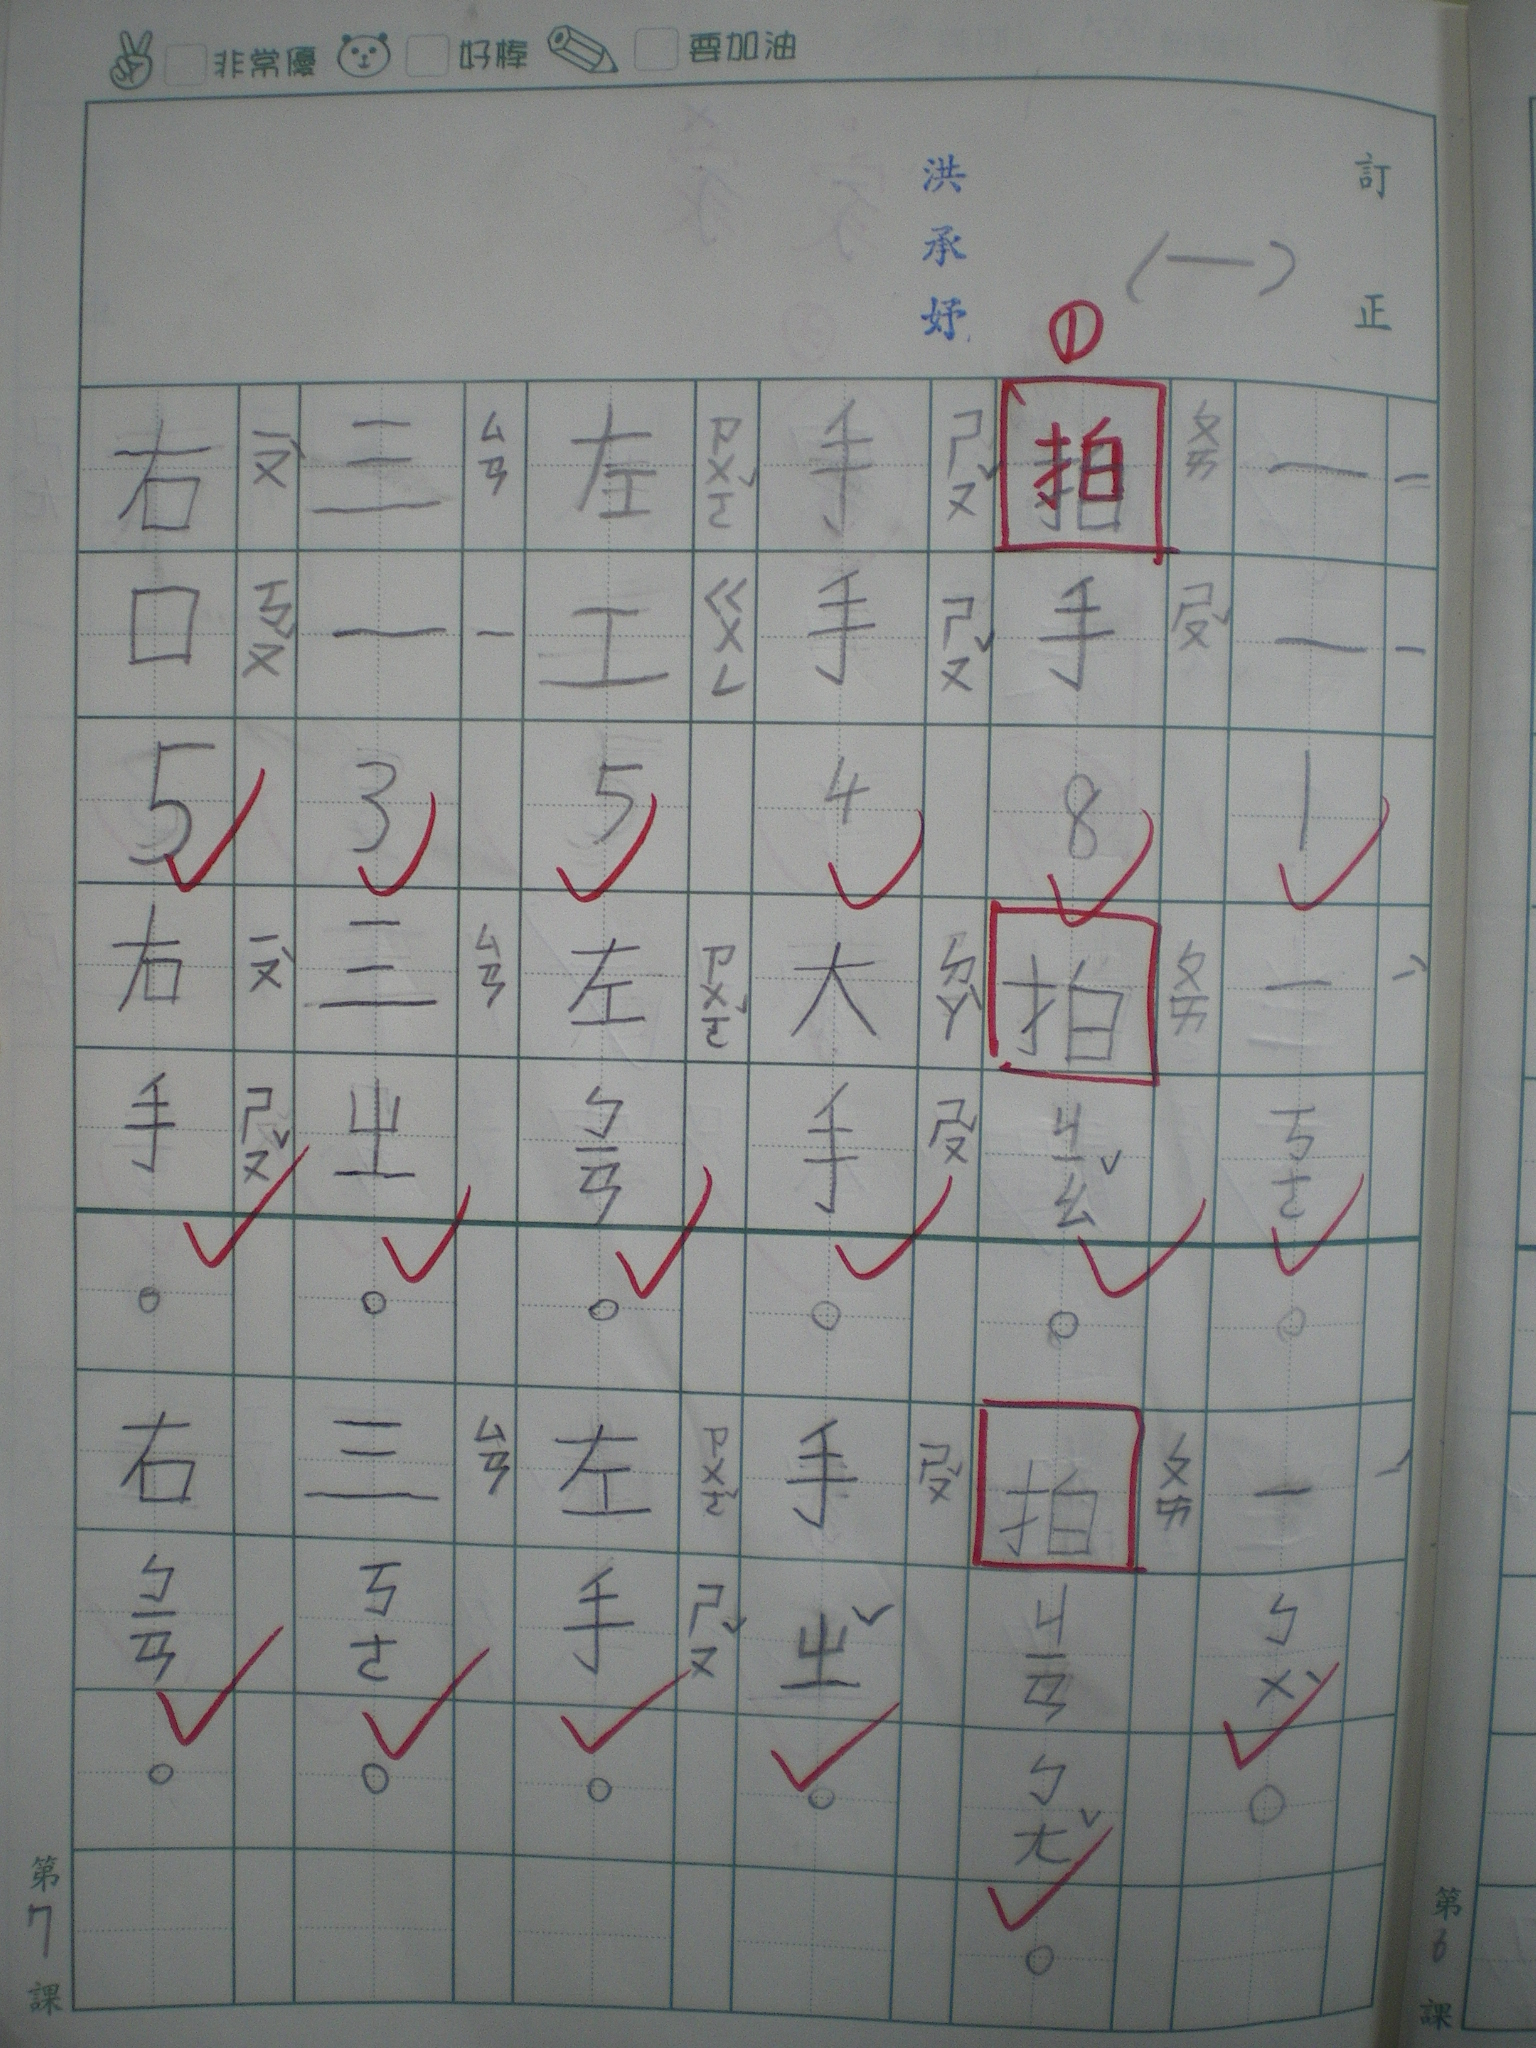 非常優 好棒 要加油
訂正
(一)
洪承妤
①
一ㄧ一ㄧ1一ㄧˋㄎㄜ。一ㄧˊㄅㄨˋ。
拍ㄆㄞ手ㄕㄡˇ8拍ㄆㄞㄐㄧㄠˇ。拍ㄆㄞㄐㄧㄢㄅㄤˇ。
手ㄕㄡˇ手ㄕㄡˇ4大ㄉㄚ手ㄕㄡˇ。手ㄕㄡˇㄓˇ。
左ㄗㄨㄛˇ工ㄍㄨㄥ5左ㄗㄨㄛˇㄅㄧㄢ。左ㄗㄨㄛˇ手ㄕㄡˇ。
三ㄙㄢ一ㄧ3三ㄙㄢㄓ。三ㄙㄢㄎㄜ。
右ㄧㄡˋ口ㄎㄡˇ5右ㄧㄡˋ手ㄕㄡˇ。右ㄅㄧㄢ。
第7課
第6課